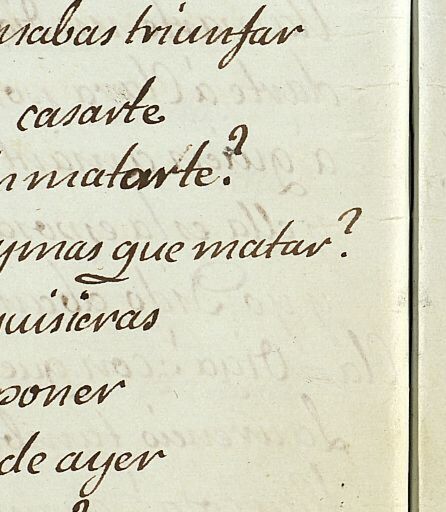 nsabas triunfar
casarte
n matarte?
ymas que matar?
quisieras
poner
de ayer
?